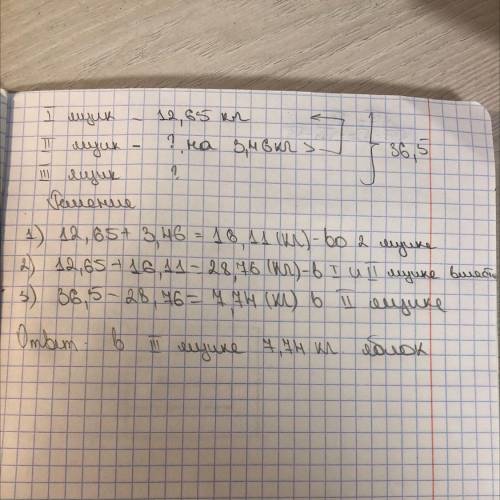 I ящик - 12,65 кг
II ящик - ? на 3,46 кг >
} 36,5
III ящик ?
Решение
1) 12,65 + 3,46 = 16,11 (кг) - во 2 ящике
2) 12,65 + 16,11 = 28,76 (кг) - в I и II ящике вместе
3) 36,5 - 28,76 = 7,74 (кг) в III ящике
Ответ: в III ящике 7,74 кг яблок